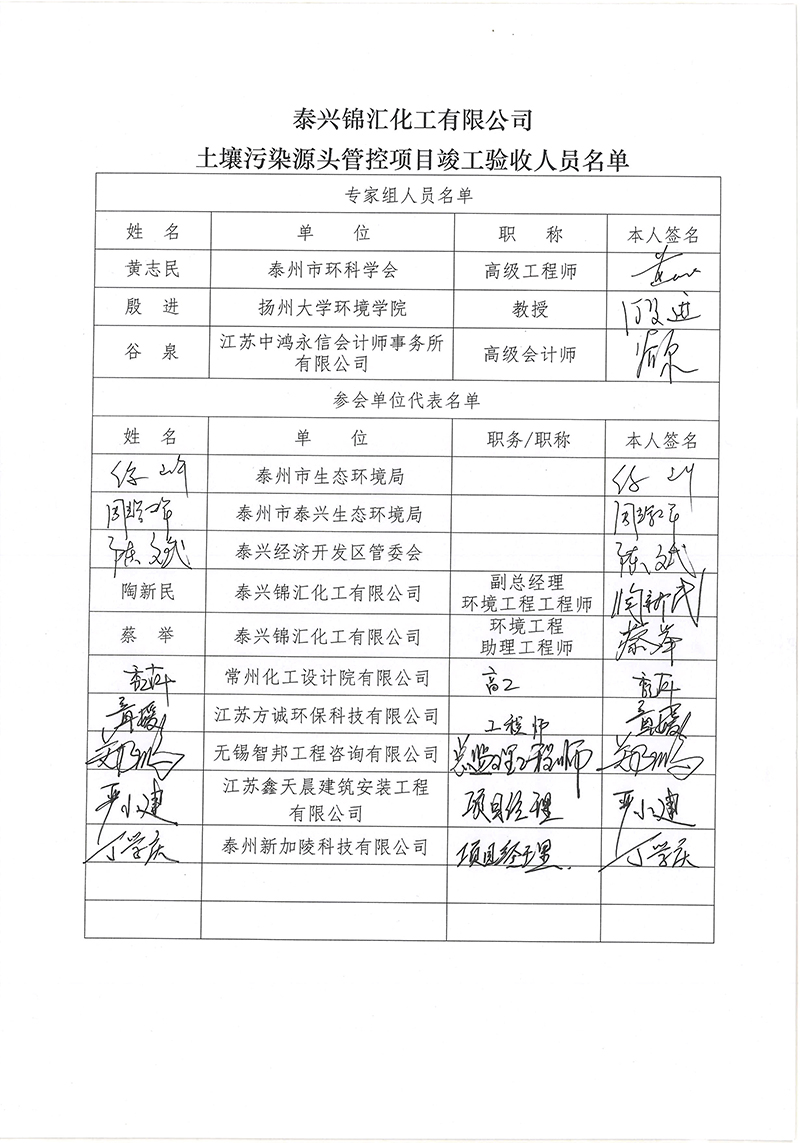 泰兴锦汇化工有限公司
土壤污染源头管控项目竣工验收人员名单
专家组人员名单
姓 名 单 位 职 称 本人签名
黄志民 泰州市环科学会 高级工程师
殷 进 扬州大学环境学院 教授 殷进
谷 泉 江苏中鸿永信会计师事务所
有限公司 高级会计师
参会单位代表名单
姓 名 单 位 职务/职称 本人签名
泰州市生态环境局
泰州市泰兴生态环境局
张文斌 泰兴经济开发区管委会 张文斌
陶新民 泰兴锦汇化工有限公司 副总经理
环境工程工程师 陶新民
蔡 举 泰兴锦汇化工有限公司 环境工程
助理工程师 蔡举
常州化工设计院有限公司 高工
黄媛 江苏方诚环保科技有限公司 工程师 黄媛
无锡智邦工程咨询有限公司 总监理工程师
严小建 江苏鑫天晨建筑安装工程
有限公司 项目经理 严小建
丁学庆 泰州新加陵科技有限公司 项目经理 丁学庆